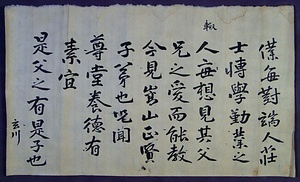 僕每對端人莊
士博學勤業之
輙
人每想見其父
兄之愛而能教
今見嵩山正賢
子弟也況聞
尊堂養德有
素宜
是父之有是子也
玄川